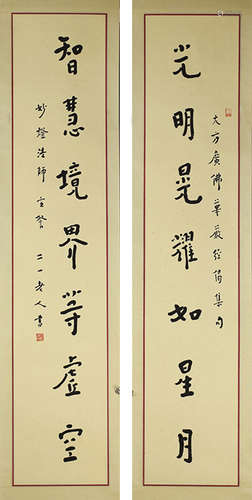 大方廣佛華嚴經偈集句
光明晃耀如星月
智慧境界等虛空
妙燈法師宣教
二一老人書